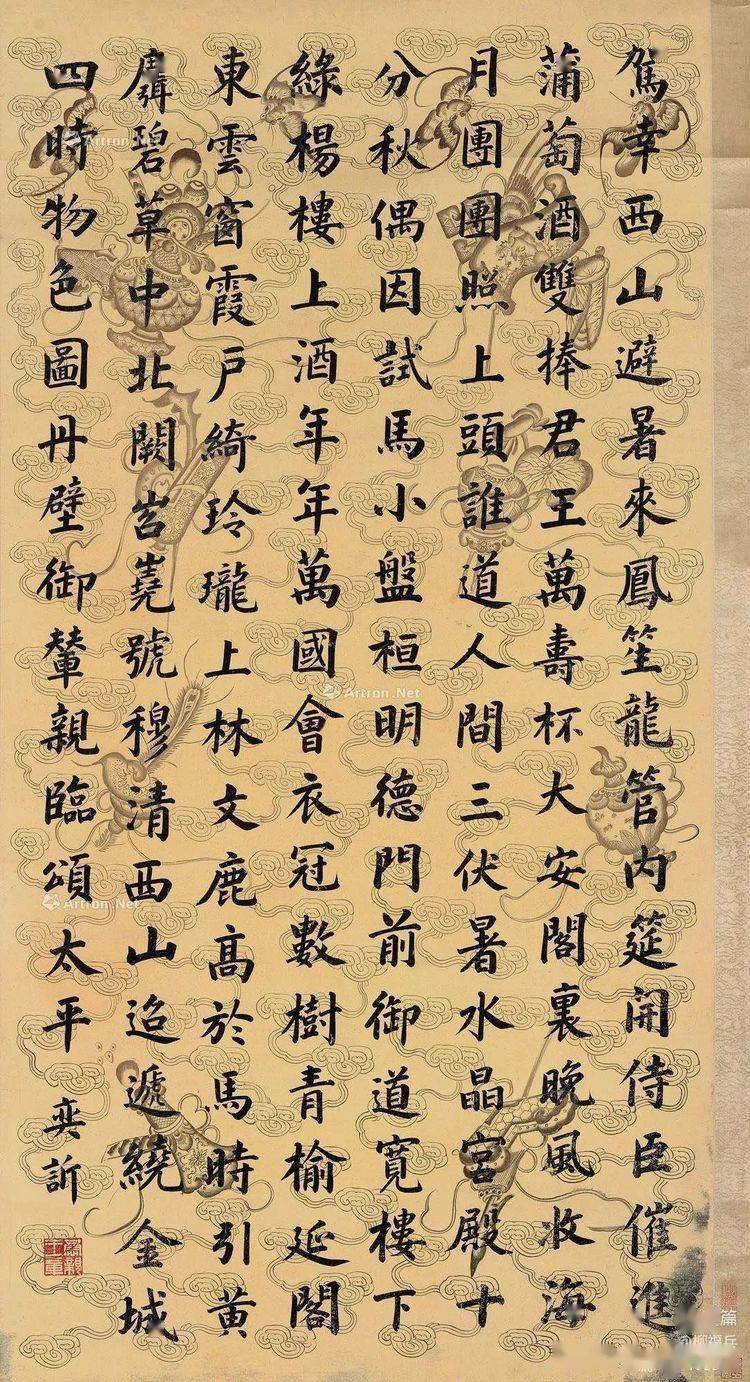 駕幸西山避暑來鳳笙龍管內筵開侍臣催進
蒲萄酒雙捧君王萬壽杯大安閣裏晚風收海
月團團照上頭誰道人間三伏暑水晶宮殿十
分秋偶因試馬小盤桓明德門前御道寬樓下
綠楊樓上酒年年萬國會衣冠數樹青榆延閣
東雲窗霞戶綺玲瓏上林文鹿高於馬時引黃
碧草中北闕岧嶤號穆清西山迢遞繞金城
四時物色圖丹壁御輦親臨頌太平 奕訢
Artron.Net
Artron.Net
Artron.Net
Artron.Net